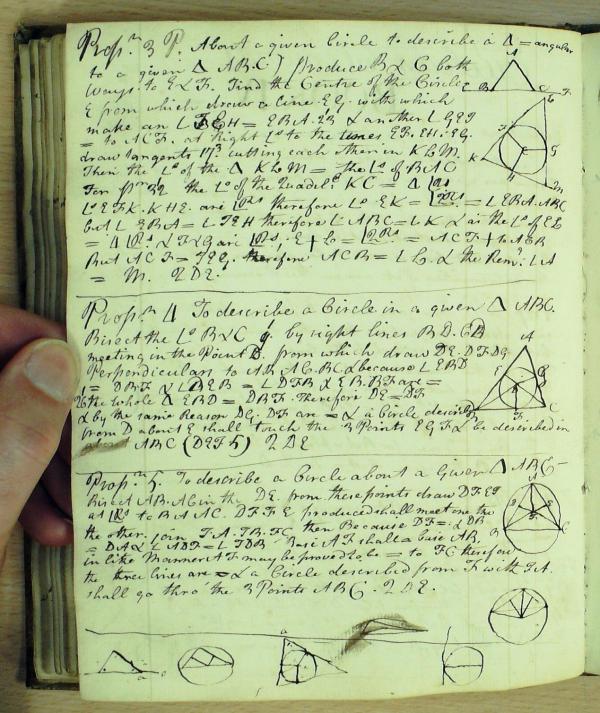 Prop.n 3 P. About a given Circle to describe a Δ = angular
to a given Δ ABC) Produce B & C both
ways to E & F. Find the Centre of the Circle
E from which draw a line EG with which
make an L GEH = EBA. 23 & another L GEF
= to ACF. at Right Ls to the lines EF. EH. EG.
draw tangents 17.3 cutting each other in K L M.
Then the Ls of the Δ KLM = the Ls of BAC
For the Ls of the Quadl. KC = 4
Ls EFK. KHE. are therefore Ls EK = = L EBA. ABC
but L EBA = L FEH therefore L ABC = L K & as the Ls of EL
= 4 & F & G are E + L = = ACF + to ACB
But ACF = FEG. therefore ACB = L L. & the Rem.r L A
= M. QDE.
Prop.n 4 To describe a Circle in a given Δ ABC.
Bisect the Ls B & C by right lines BD. CD
meeting in the Point D. from which draw DE. DF. DG
Perpendiculars to AB. AC. BC & because L EBD
= DBF & L DEB = L DFB & EB. BF are =
the whole Δ EBD = DBF. Therefore DE = DF
& by the same Reason DG. DF are = & a Circle described
from D about E shall touch the 3 Points EGF & be described in
about ABC (DEF 5) QDE
Prop.n 5. To describe a Circle about a Given Δ ABC
Bisect AB. AC in the DE from these points draw DF. EF
at to BA AC. DF. FE produced shall meet one the
the other. join FA. FB. FC. then Because DF = & DB
= DA & L ADF = L FDB Base AF shall = base FB,
in like Manner AF may be proved to be = to FC therefore
the three lines are = & a Circle described from F with FA.
shall go thro' the 3 Points ABC. QDE.